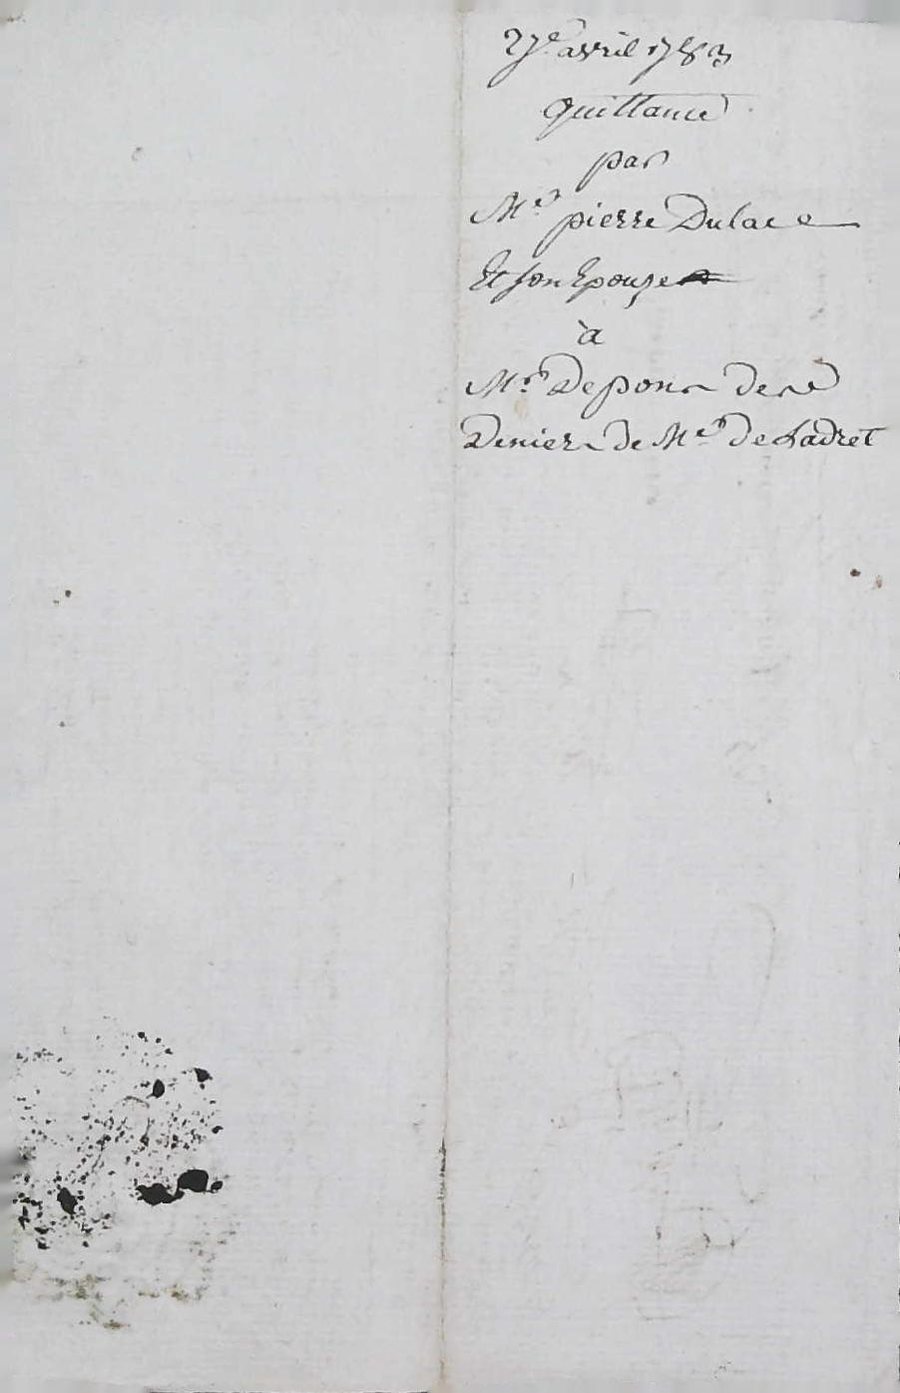 27e avril 1783
quittance
par
Mr pierre Dulac
Et son Epouze
à
Mr Depons des
Deniers de Mr de Ladret